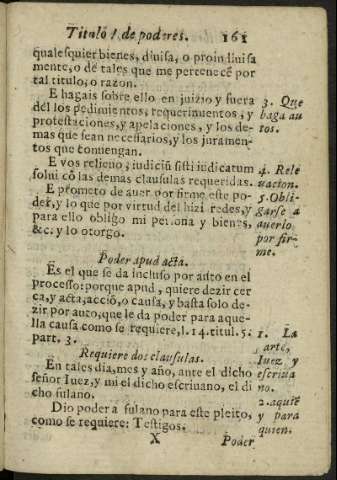 Tituló / de poderes. 161
qualesquier bienes, diuisa, o proindiuisa
mente, o de tales que me pertenecē por
tal titulo, o razon.
E hagais sobre ello en juizio y fuera
dèl los pedimientos, requerimientos, y
protestaciones, y apelaciones, y los de-
mas que sean necessarios, y los juramen-
tos que conuengan.
3. Que
haga au
tos.
E vos relieuo; iudiciū sisti iudicatum
solui cō las demas clausulas requeridas.
4. Rele
uacion.
E prometo de auer por firme este po-
der, y lo que por virtud del hizieredes, y
para ello obligo mi persona y bienes,
&c. y lo otorgo.
5. Obli-
garse a
auerlo
por fir-
me.
Poder apud acta.
Es el que se da incluso por auto en el
processo: porque apud, quiere dezir cer
ca, y acta, acciō, o causa, y basta solo de-
zir por auto, que le da poder para aque-
lla causa como se requiere, l. 14. titul. 5.
part. 3.
Requiere dos clausulas.
En tal dia, mes y año, ante el dicho
señor Iuez, y mi el dicho escriuano, el di
cho fulano.
1. La
parte,
Iuez y
escriua
no.
Dio poder a fulano para este pleito,
como se requiere: Testigos.
2. a quiē
y para
quien.
X Poder